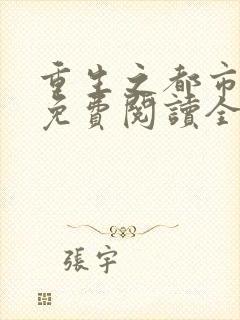 重生之都市
免費閱讀全
張宇